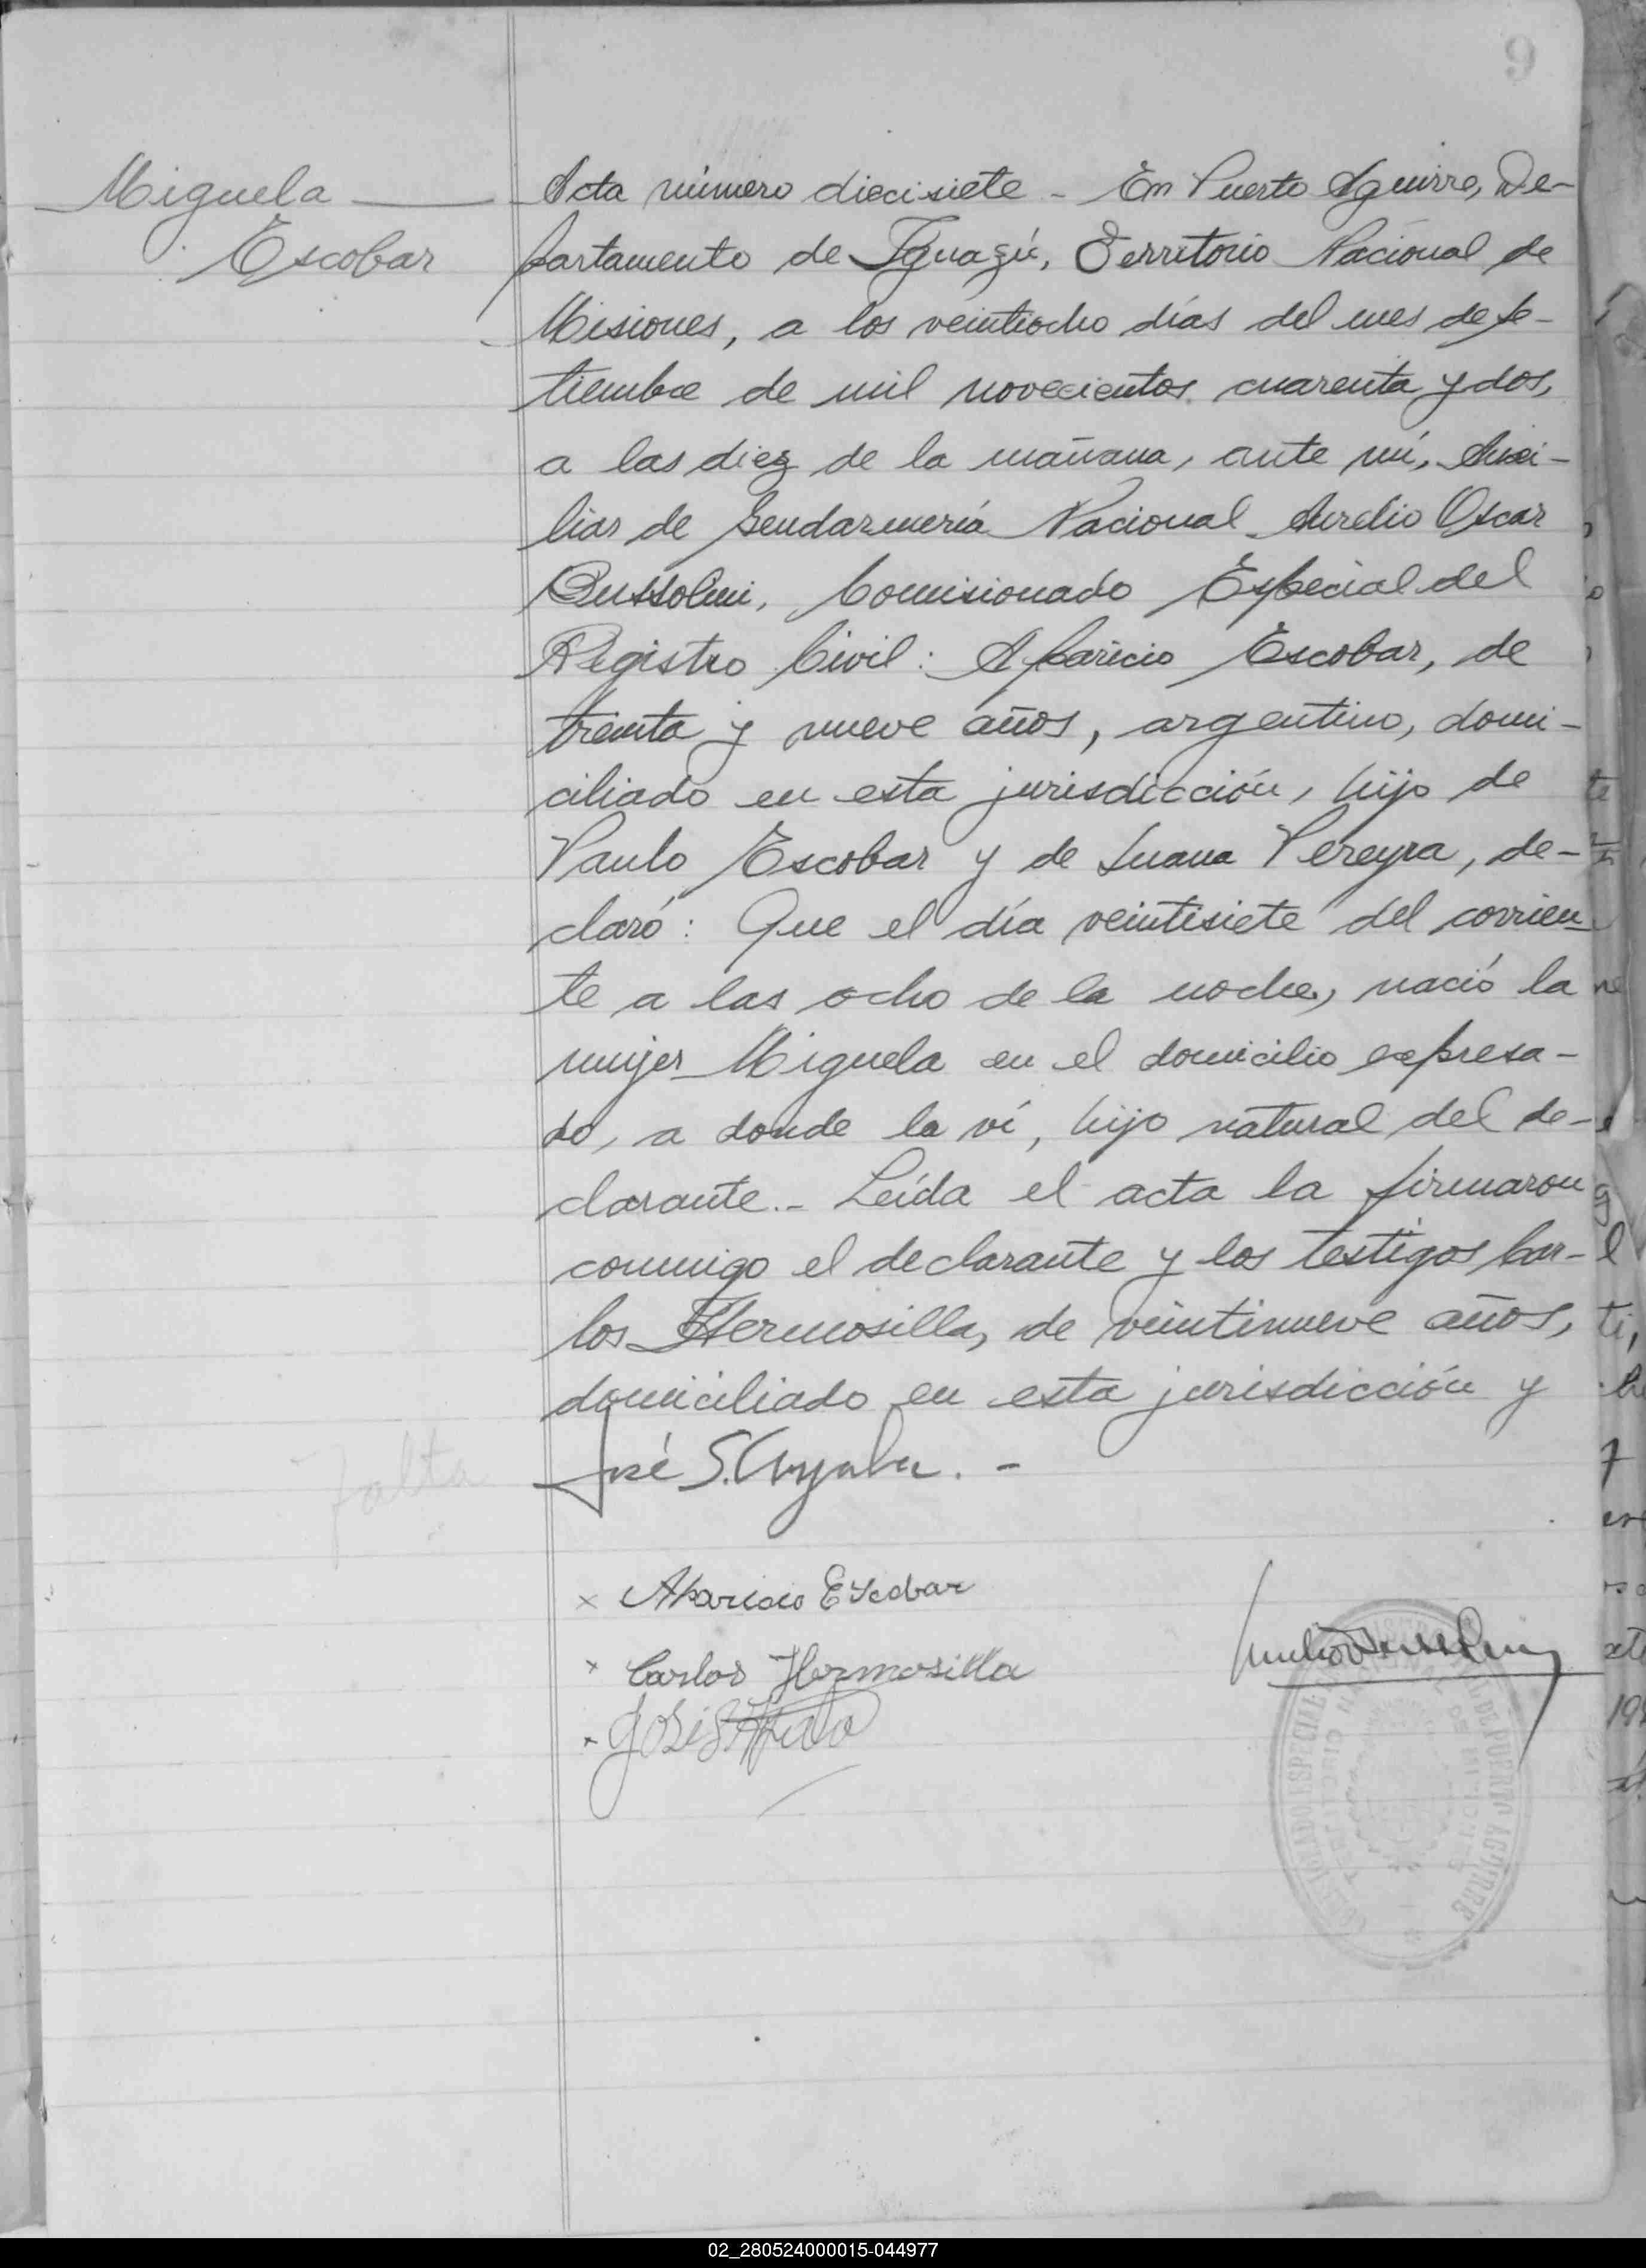 9
Miguela
Escobar
Acta número diecisiete - En Puerto Aguirre, De-
partamento de Iguazú, Territorio Nacional de
Misiones, a los veintiocho días del mes de se-
tiembre de mil novecientos cuarenta y dos,
a las diez de la mañana, ante mí, Auxi-
liar de Gendarmería Nacional Aurelio Oscar
Bussolini, Comisionado Especial del
Registro Civil: Aparicio Escobar, de
treinta y nueve años, argentino, domi-
ciliado en esta jurisdicción, hijo de
Paulo Escobar y de Juana Pereyra, de-
claró: Que el día veintisiete del corrien-
te a las ocho de la noche, nació la
mujer Miguela en el domicilio expresa-
do, a donde la ví, hijo natural del de-
clarante.- Leída el acta la firmaron
conmigo el declarante y los testigos Car-
los Hermosilla, de veintinueve años,
domiciliado en esta jurisdicción y
José S. Ayala. -
falta
x Aparicio Escobar
x Carlos Hermosilla
02_280524000015-044977